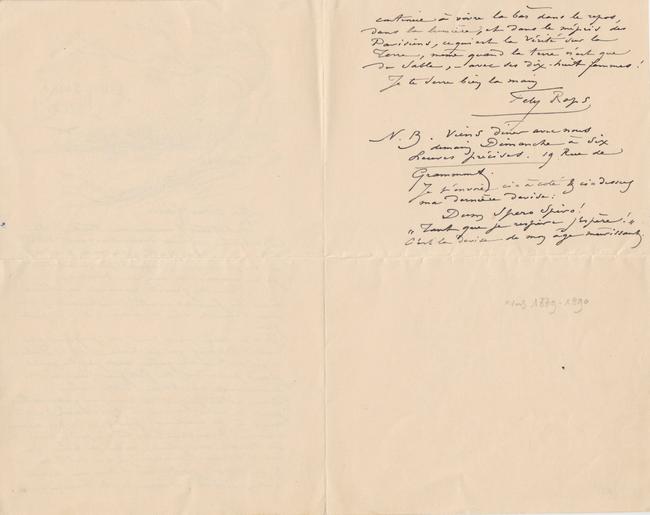 continue à vivre là bas dans le repos,
dans la lumière, et dans le mépris des
Parisiens, ce qui est la Vérité sur la
Terre, même quand la terre n'est que
du Sable, – avec ses dix-huit femmes!
Je te serre bien la main
Fély Rops
N. B. Viens dîner avec nous
demain Dimanche à Six
heures précises. 19 Rue de
Grammont.
Je t'envoie ci-à côté & ci-dessus
ma dernière devise:
Dum Spero Spiro!
"Tant que je respire j'espère!"
C'est la devise de mon âge mûrissant.
1889-1890